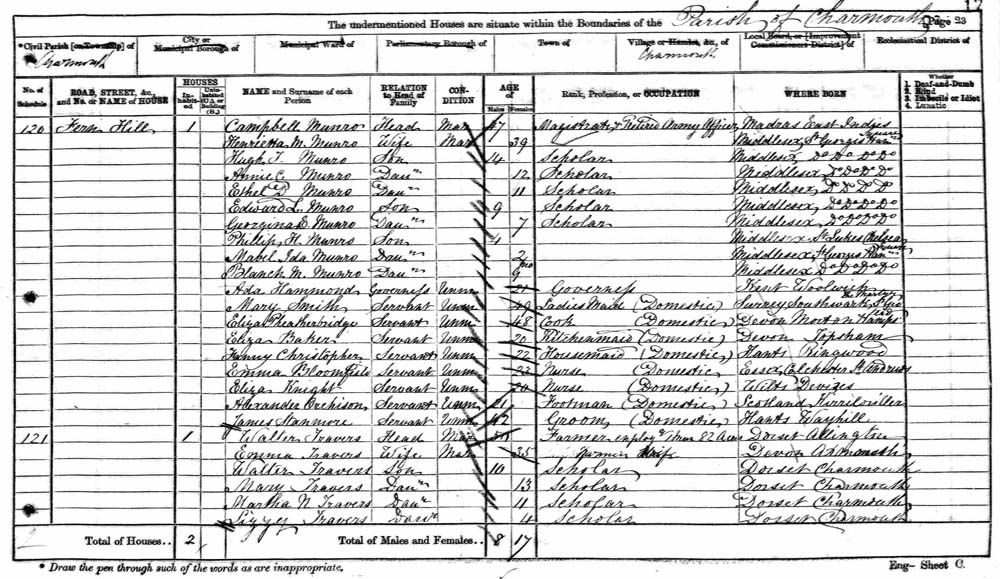 The undermentioned Houses are situate within the Boundaries of the Parish of Charmouth Page 23
* Civil Parish [or Township] of Charmouth
City or Municipal Borough of
Municipal Ward of
Parliamentary Borough of
Town of
Village or Hamlet, &c., of Charmouth
Local Board, or [Improvement Commissioners District] of
Ecclesiastical District of
No. of Schedule
ROAD, STREET, &c., and No. or NAME of HOUSE
HOUSES
Inhabited
Uninhabited (U.) or Building (B.)
NAME and Surname of each Person
RELATION to Head of Family
CONDITION
AGE of
Males Females
Rank, Profession, or OCCUPATION
WHERE BORN
Whether
1. Deaf-and-Dumb
2. Blind
3. Imbecile or Idiot
4. Lunatic
120 Fern Hill 1 Campbell Munro Head Mar 47 Magistrate, Retired Army Officer Madras East Indies
Henrietta M. Munro Wife Mar 39 Middlesex, St Georges Han Square
Hugh T. Munro Son 14 Scholar Middlesex, Do Do Do Do
Annie C. Munro Daur 12 Scholar Middlesex Do Do Do
Ethel D Munro Daur 11 Scholar Middlesex, Do Do Do
Edward L. Munro Son 9 Scholar Middlesex, Do Do Do
Georgina E. Munro Daur 7 Scholar Middlesex, Do Do Do
Phillip H. Munro Son 4 Middlesex St Lukes Chelsea
Mabel Ida Munro Daur 2 Middlesex, St Georges Han Square
Blanch M. Munro Daur 9 mo Middlesex Do Do Do Do
Ada Hammond Governess Unm 21 Governess Kent Woolwich
Mary Smith Servant Unm 49 Ladies Maid (Domestic) Surrey Southwark St Geo the Martyr
Eliza Servant Unm 48 Cook (Domestic) Devon Morton Hampstead
Eliza Baker Servant Unm 20 Kitchenmaid (Domestic) Devon Topsham
Fanny Christopher Servant Unm 22 Housemaid (Domestic) Hants Ringwood
Emma Bloomfield Servant Unm 23 Nurse (Domestic) Essex Colchester St Andrews
Eliza Knight Servant Unm 20 Nurse (Domestic) Wilts Devizes
Alexander Servant Unm 21 Footman (Domestic) Scotland
James Stanmore Servant Unm 42 Groom (Domestic) Hants Wayhill
121 1 Walter Travers Head Mar Farmer employg 2 men 82 Acres Dorset Allington
Emma Travers Wife Mar 35 Farmers Wife Devon Axmouth
Walter Travers Son 10 Scholar Dorset Charmouth
Mary Travers Daur 13 Scholar Dorset Charmouth
Martha N Travers Daur 11 Scholar Dorset Charmouth
Lizzy Travers Daur 4 Scholar Dorset Charmouth
2 Total of Houses.. 2 Total of Males and Females.. 8 17
* Draw the pen through such of the words as are inappropriate.
Eng- Sheet C.